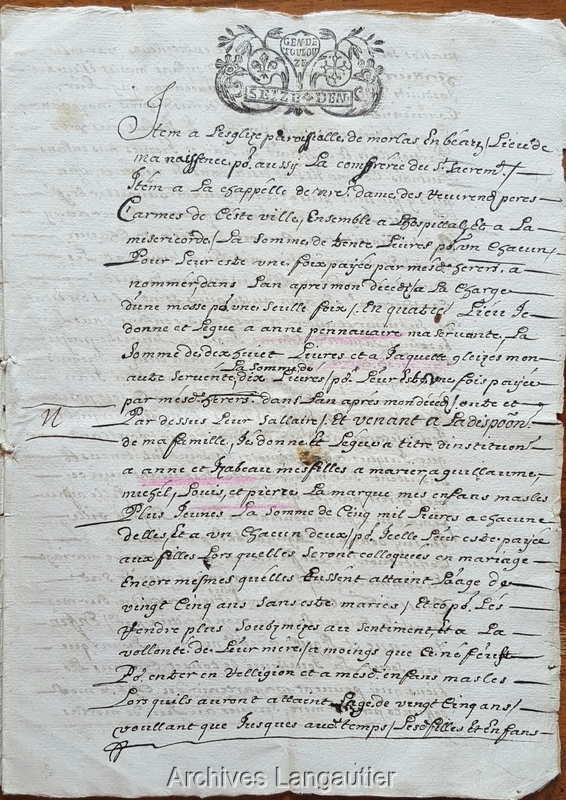 GEN·DE
TOULOU
ZE
SEIZE DEN
Item a Lesglize parroissialle de morlas En béarn / Lieu de
ma naissence, po.r aussy La confrérie du S.t Sacrem.t /
Item a La chappelle de nre. dame, des Reverend peres
Carmes de Ceste ville, Ensemble a Lhospittal, Et a La
misericorde / La somme de trente Livres po.r un Chacun /
Pour Leur estre une foix payée par mesd. herers. a
nommer dans Lan apres mon decedz a La Charge
d'une masse po.r une seulle foix /. En quatre Lieu Je
donne et Legue a anne pennavaire ma servante, La
Somme de dex huict Livres et a Jaquette gleizes mon
autre servente, La somme de dix Livres / po.r Leur Estre une fois payée
par mesd. herers. dans Lan apres mon decedz / outre et
N
Par dessus Leur sallaire /. Et venant a La despoon.
de ma famille, Je donne et Legue a titre dinstitution
a anne et Izabeau mes filles a marier, a guillaume,
michel, Louis, et pierre La marque mes enfans masles
Plus Jeunes La somme de Cinq mil Livres a chacune
delles, et a un Chacun deux / po.r Icelle Leur estre payée
aux filles Lors quelles seront colloquées en mariage
Encore mesmes quelles Eussent attaint Laage de
vingt Cinq ans sans estre maries / Et ce po.r Les
Rendre plus soubzmizes au sentiment, et a La
vollonté de Leur mere, / a moings que Ce ne feust
Po.r entrer en Relligion et a mesd. enfans masles
Lors quils auront attaint Laage de vingt Cinq ans /
voullant que Jusques aud. temps / Lesd. filles et Enfans
Archives Langautier